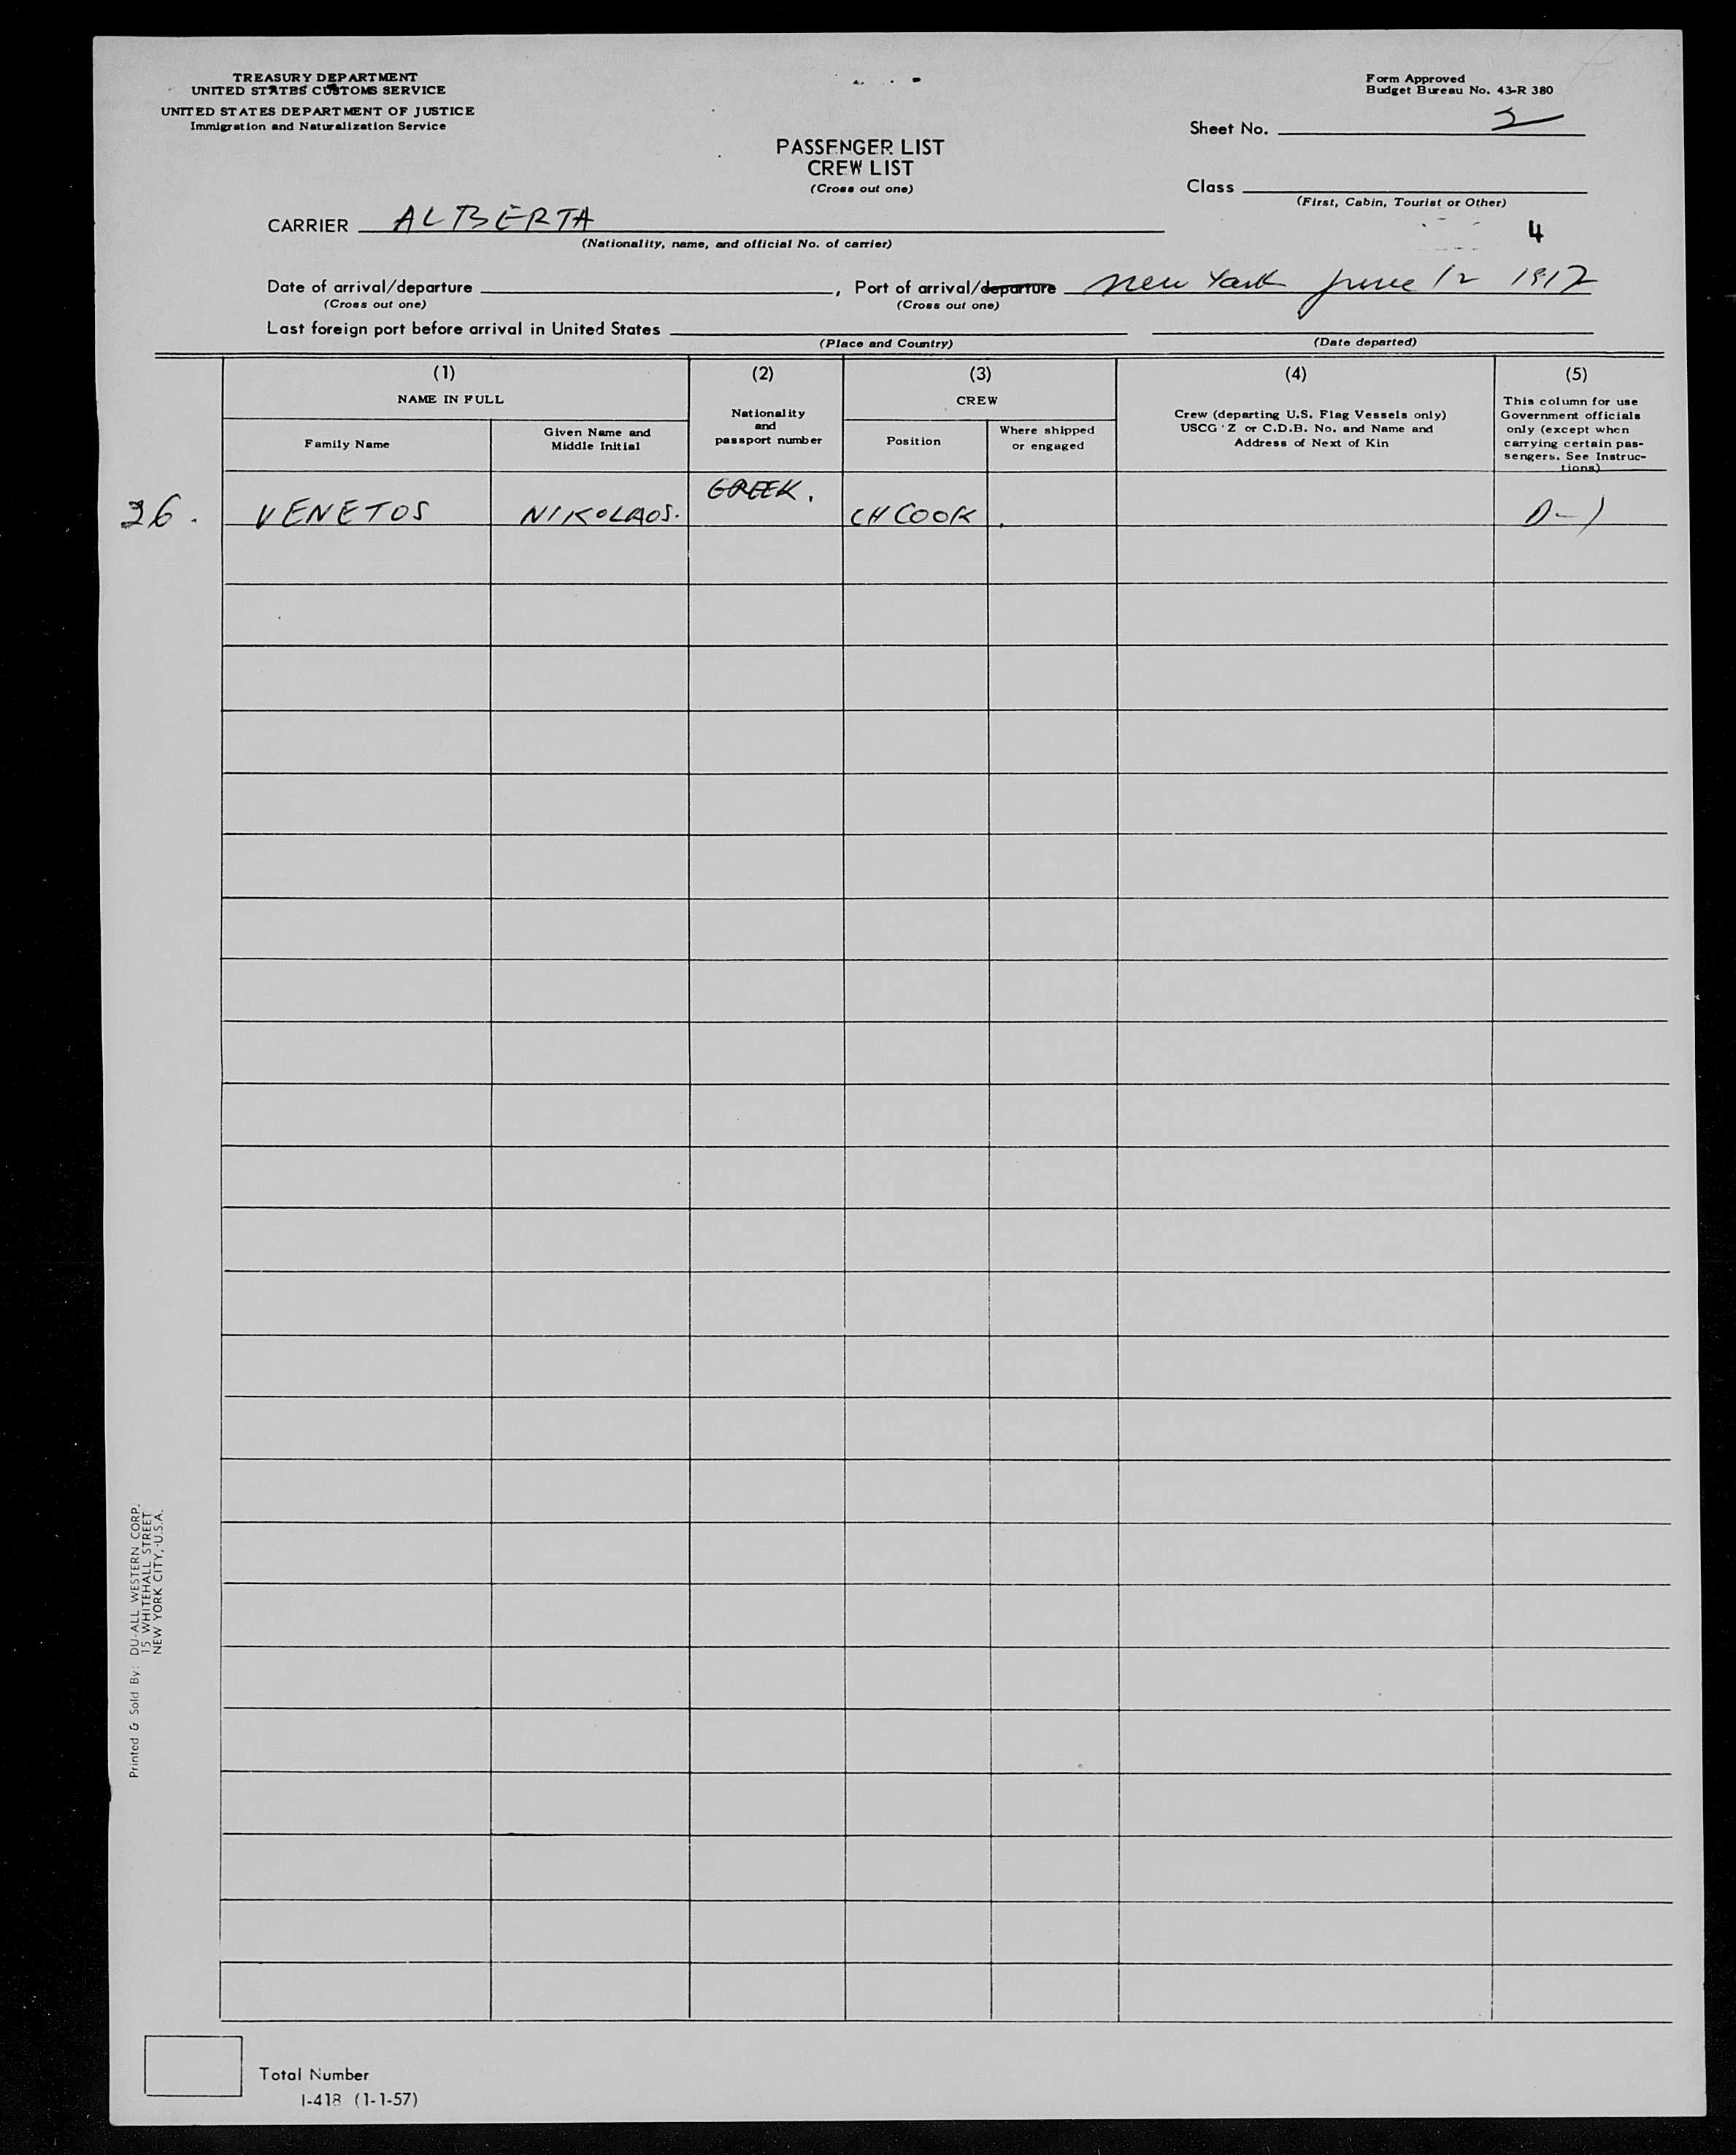 TREASURY DEPARTMENT
UNITED STATES CUSTOMS SERVICE
UNITED STATES DEPARTMENT OF JUSTICE
Immigration and Naturalization Service
Form Approved
Budget Bureau No. 43-R 380
Sheet No. 2
PASSENGER LIST
CREW LIST
(Cross out one)
Class
(First, Cabin, Tourist or Other)
4
CARRIER ALBERTA
(Nationality, name, and official No. of carrier)
Date of arrival/departure , Port of arrival/departure New York June 12 1912
(Cross out one) (Cross out one)
Last foreign port before arrival in United States
(Place and Country) (Date departed)
(1) (2) (3) (4) (5)
NAME IN FULL
Family Name
Given Name and
Middle Initial
Nationality
and
passport number
CREW
Position
Where shipped
or engaged
Crew (departing U.S. Flag Vessels only)
USCG 'Z or C.D.B. No. and Name and
Address of Next of Kin
This column for use
Government officials
only (except when
carrying certain pas-
sengers. See Instruc-
tions)
26. VENETOS NIKOLAOS. GREEK. CH COOK D-1
Printed & Sold By: DU-ALL WESTERN CORP.
15 WHITEHALL STREET
NEW YORK CITY, U.S.A.
Total Number
I-418 (1-1-57)